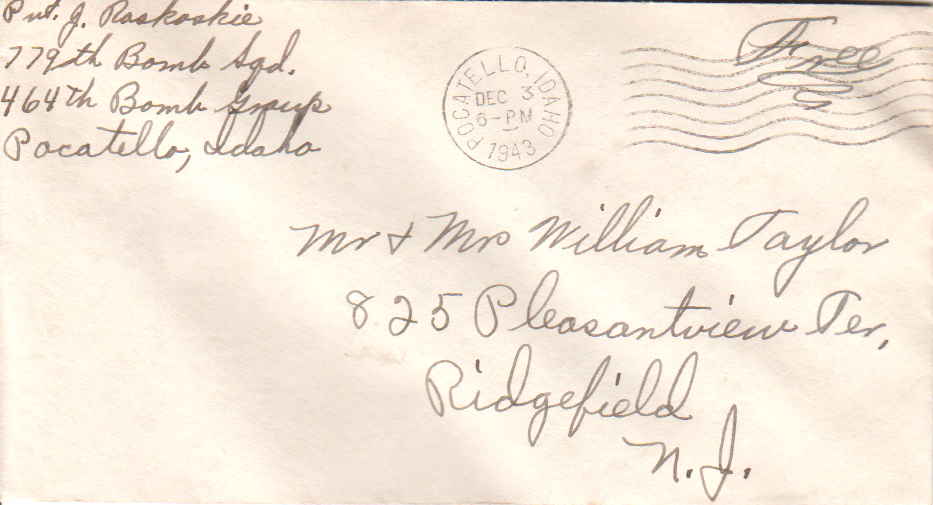 Pvt. J. Raskoskie
779th Bomb Sqd.
464th Bomb Group
Pocatello, Idaho
POCATELLO, IDAHO
DEC 3
6-PM
1943
Free
Mr & Mrs William Taylor
825 Pleasantview Ter,
Ridgefield
N.J.